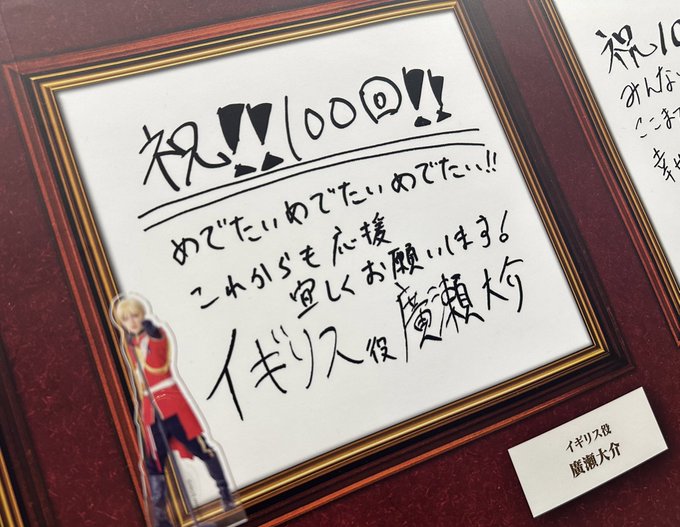 祝!!100回!!
めでたいめでたいめでたい!!
これからも応援
宜しくお願いします!
イギリス役 廣瀬大介
イギリス役
廣瀬大介
祝10
みんな
ここま
幸